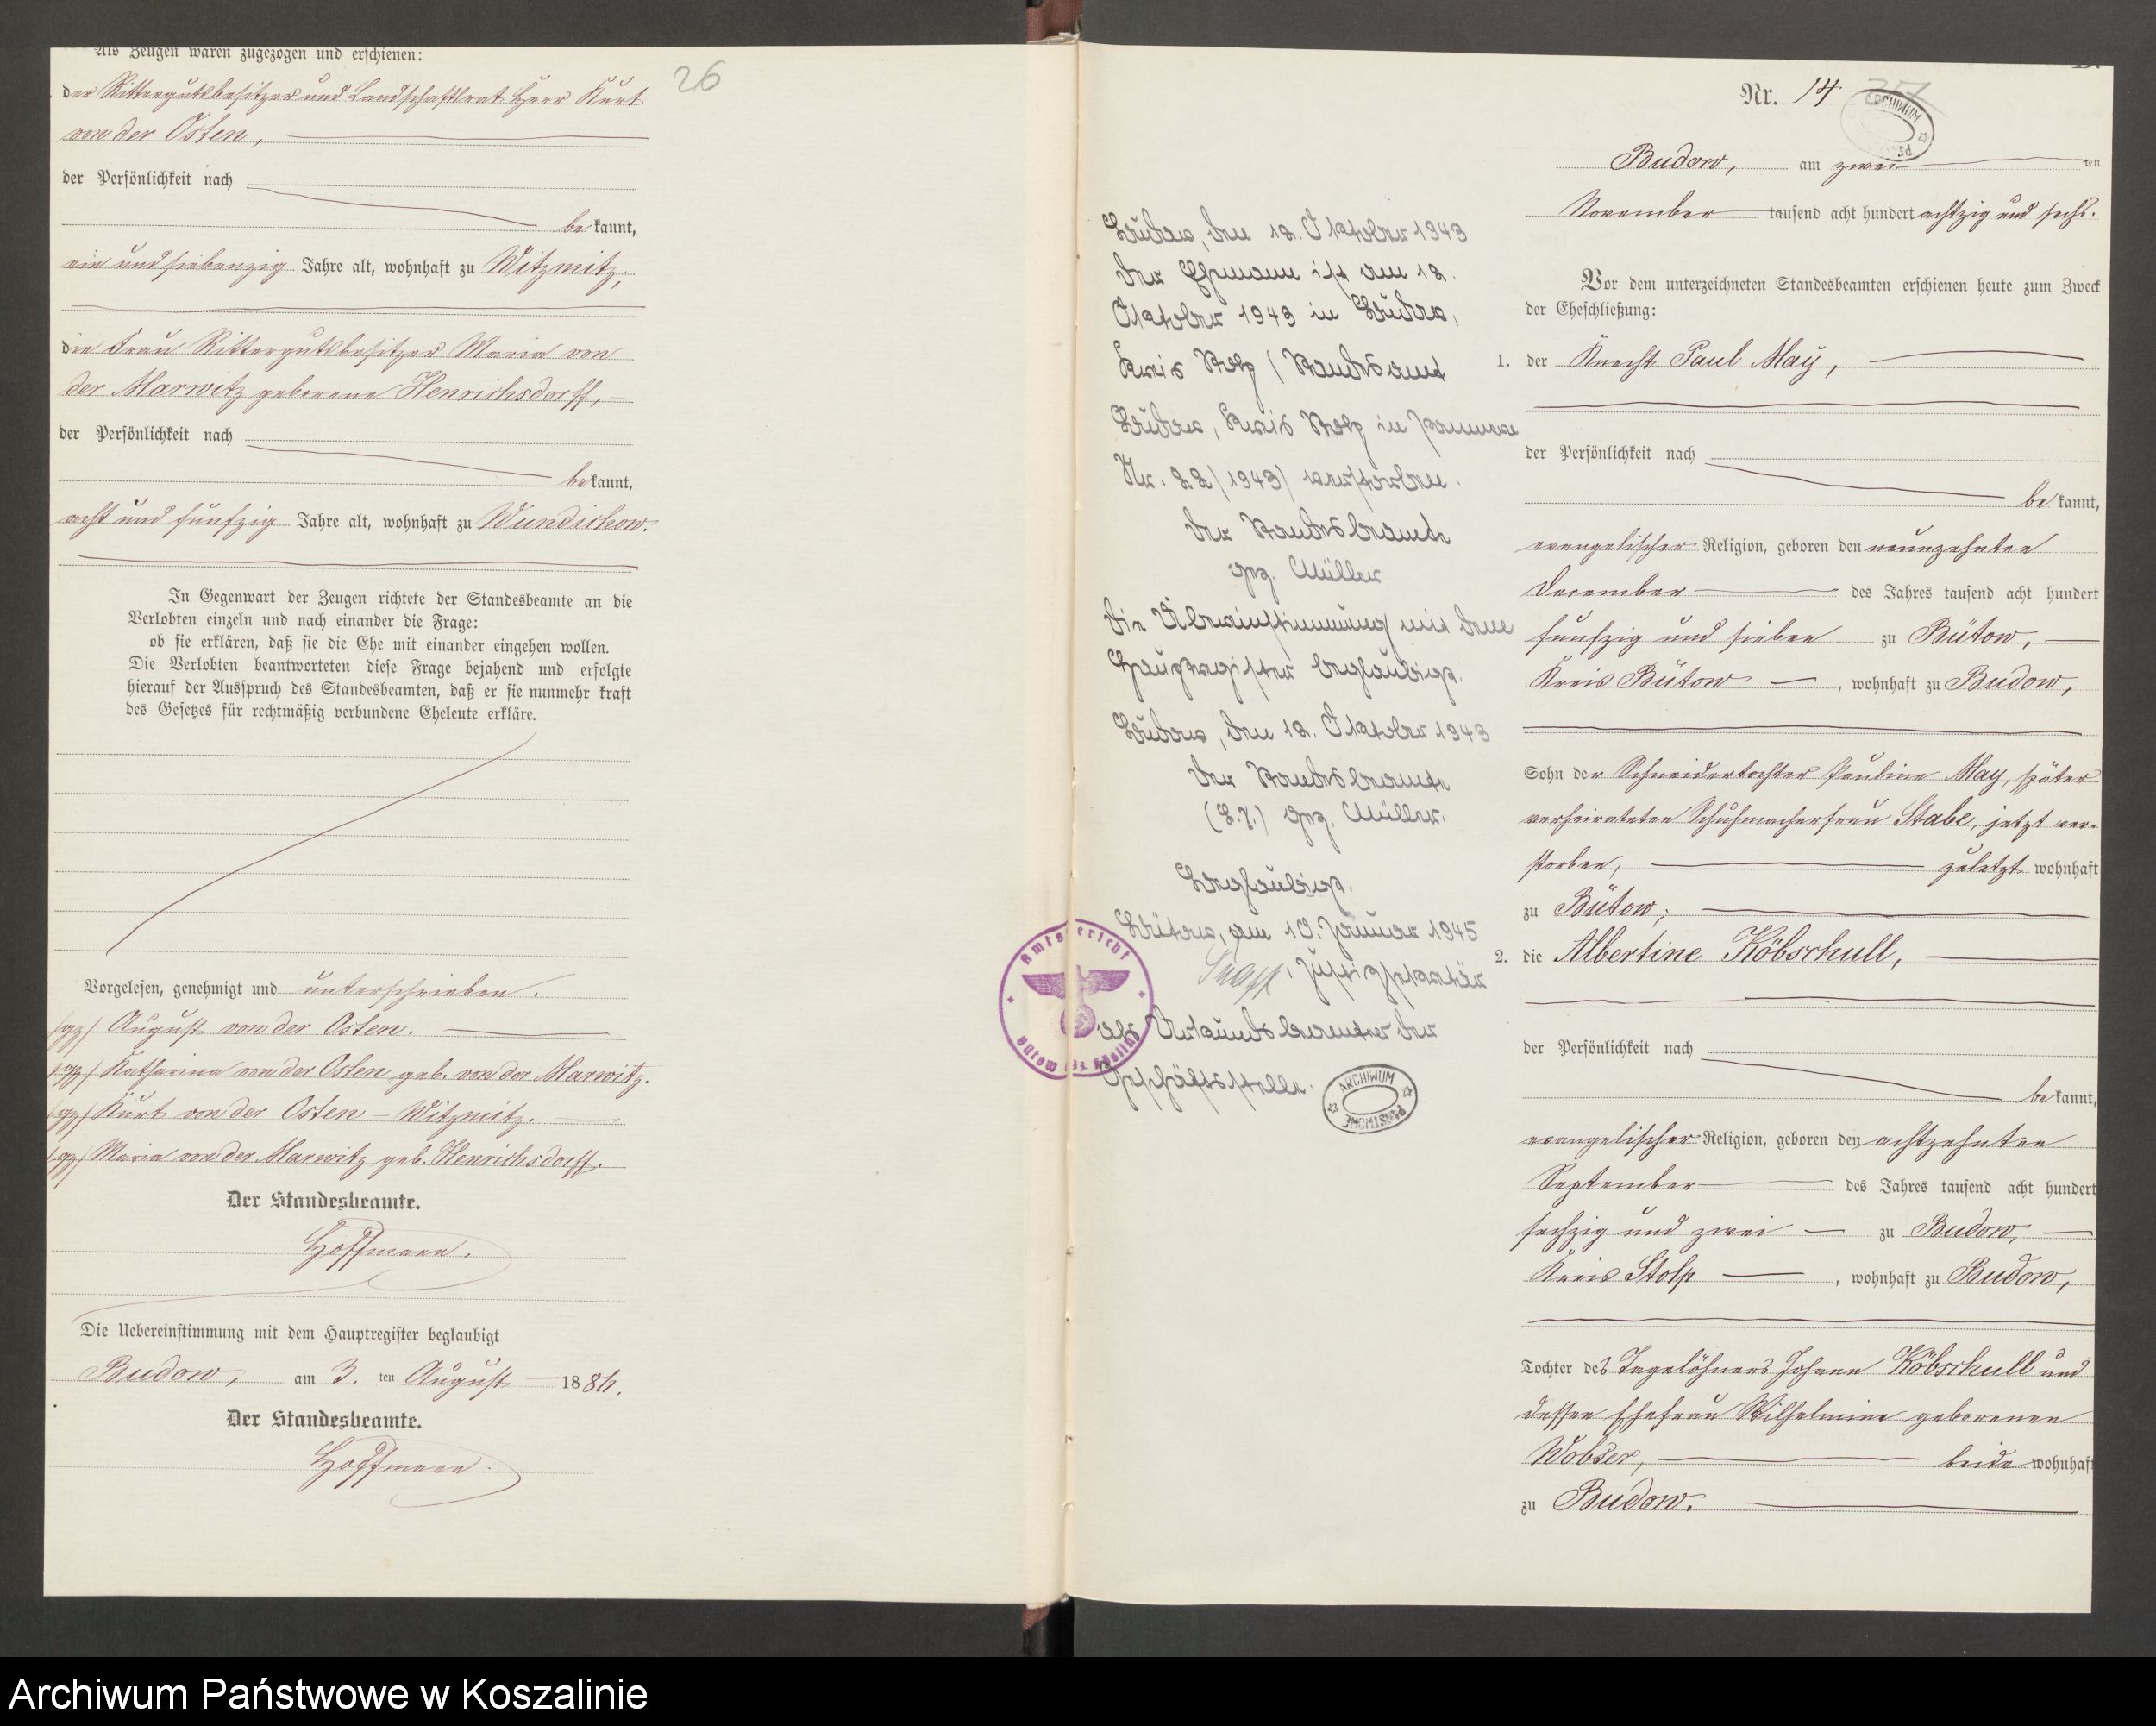 Als Zeugen waren zugezogen und erschienen:
der Rittergutsbesitzer und Landschaftsrat Herr Kurt
von der Osten,
der Persönlichkeit nach
be kannt,
ein und siebenzig Jahre alt, wohnhaft zu Witzmitz,
die Frau Rittergutsbesitzer Maria von
der Marwitz geborene Henrichsdorff,
der Persönlichkeit nach
be kannt,
acht und fünfzig Jahre alt, wohnhaft zu Wundichow.
In Gegenwart der Zeugen richtete der Standesbeamte an die
Verlobten einzeln und nach einander die Frage:
ob sie erklären, daß sie die Ehe mit einander eingehen wollen.
Die Verlobten beantworteten diese Frage bejahend und erfolgte
hierauf der Ausspruch des Standesbeamten, daß er sie nunmehr kraft
des Gesetzes für rechtmäßig verbundene Eheleute erkläre.
Vorgelesen, genehmigt und unterschrieben.
/gz/ August von der Osten.
/gz/ Katharina von der Osten geb. von der Marwitz.
/gz/ Kurt von der Osten – Witzmitz.
/gz/ Maria von der Marwitz geb. Henrichsdorff.
Der Standesbeamte.
Hoffmann.
Die Uebereinstimmung mit dem Hauptregister beglaubigt
Budow, am 3. ten August 1886.
Der Standesbeamte.
Hoffmann.
26
Budow, den 12. Oktober 1943
Der Ehemann ist am 12.
Oktober 1943 in Budow,
Kreis Stolp (Standesamt
Budow, Kreis Stolp in Pommern
Nr. 22/1943) verstorben.
Der Standesbeamte
gez. Müller
Die Übereinstimmung mit dem
Hauptregister beglaubigt.
Budow, den 12. Oktober 1943
Der Standesbeamte
(L.S.) gez. Müller.
Beglaubigt.
Bütow, am 10. Januar 1945
Justizsekretär
als Urkundsbeamter der
Geschäftsstelle.
Amtsgericht
ARCHIWUM
PAŃSTWOWE
Nr. 14
27
ARCHIWUM
Budow, am zwei ten
November tausend acht hundert achtzig und sechs.
Vor dem unterzeichneten Standesbeamten erschienen heute zum Zweck
der Eheschließung:
1. der Knecht Paul May,
der Persönlichkeit nach
be kannt,
evangelischer Religion, geboren den neunzehnten
December des Jahres tausend acht hundert
fünfzig und sieben zu Bütow,
Kreis Bütow, wohnhaft zu Budow,
Sohn der Schneidertochter Pauline May, später
verheirateten Schuhmacherfrau Stabe, jetzt ver-
storben, zuletzt wohnhaft
zu Bütow;
2. die Albertine Köbschull,
der Persönlichkeit nach
be kannt,
evangelischer Religion, geboren den achtzehnten
September des Jahres tausend acht hundert
sechzig und zwei zu Budow,
Kreis Stolp, wohnhaft zu Budow,
Tochter des Tagelöhners Johann Köbschull und
dessen Ehefrau Wilhelmine geborenen
Wobser, beide wohnhaft
zu Budow.
Archiwum Państwowe w Koszalinie